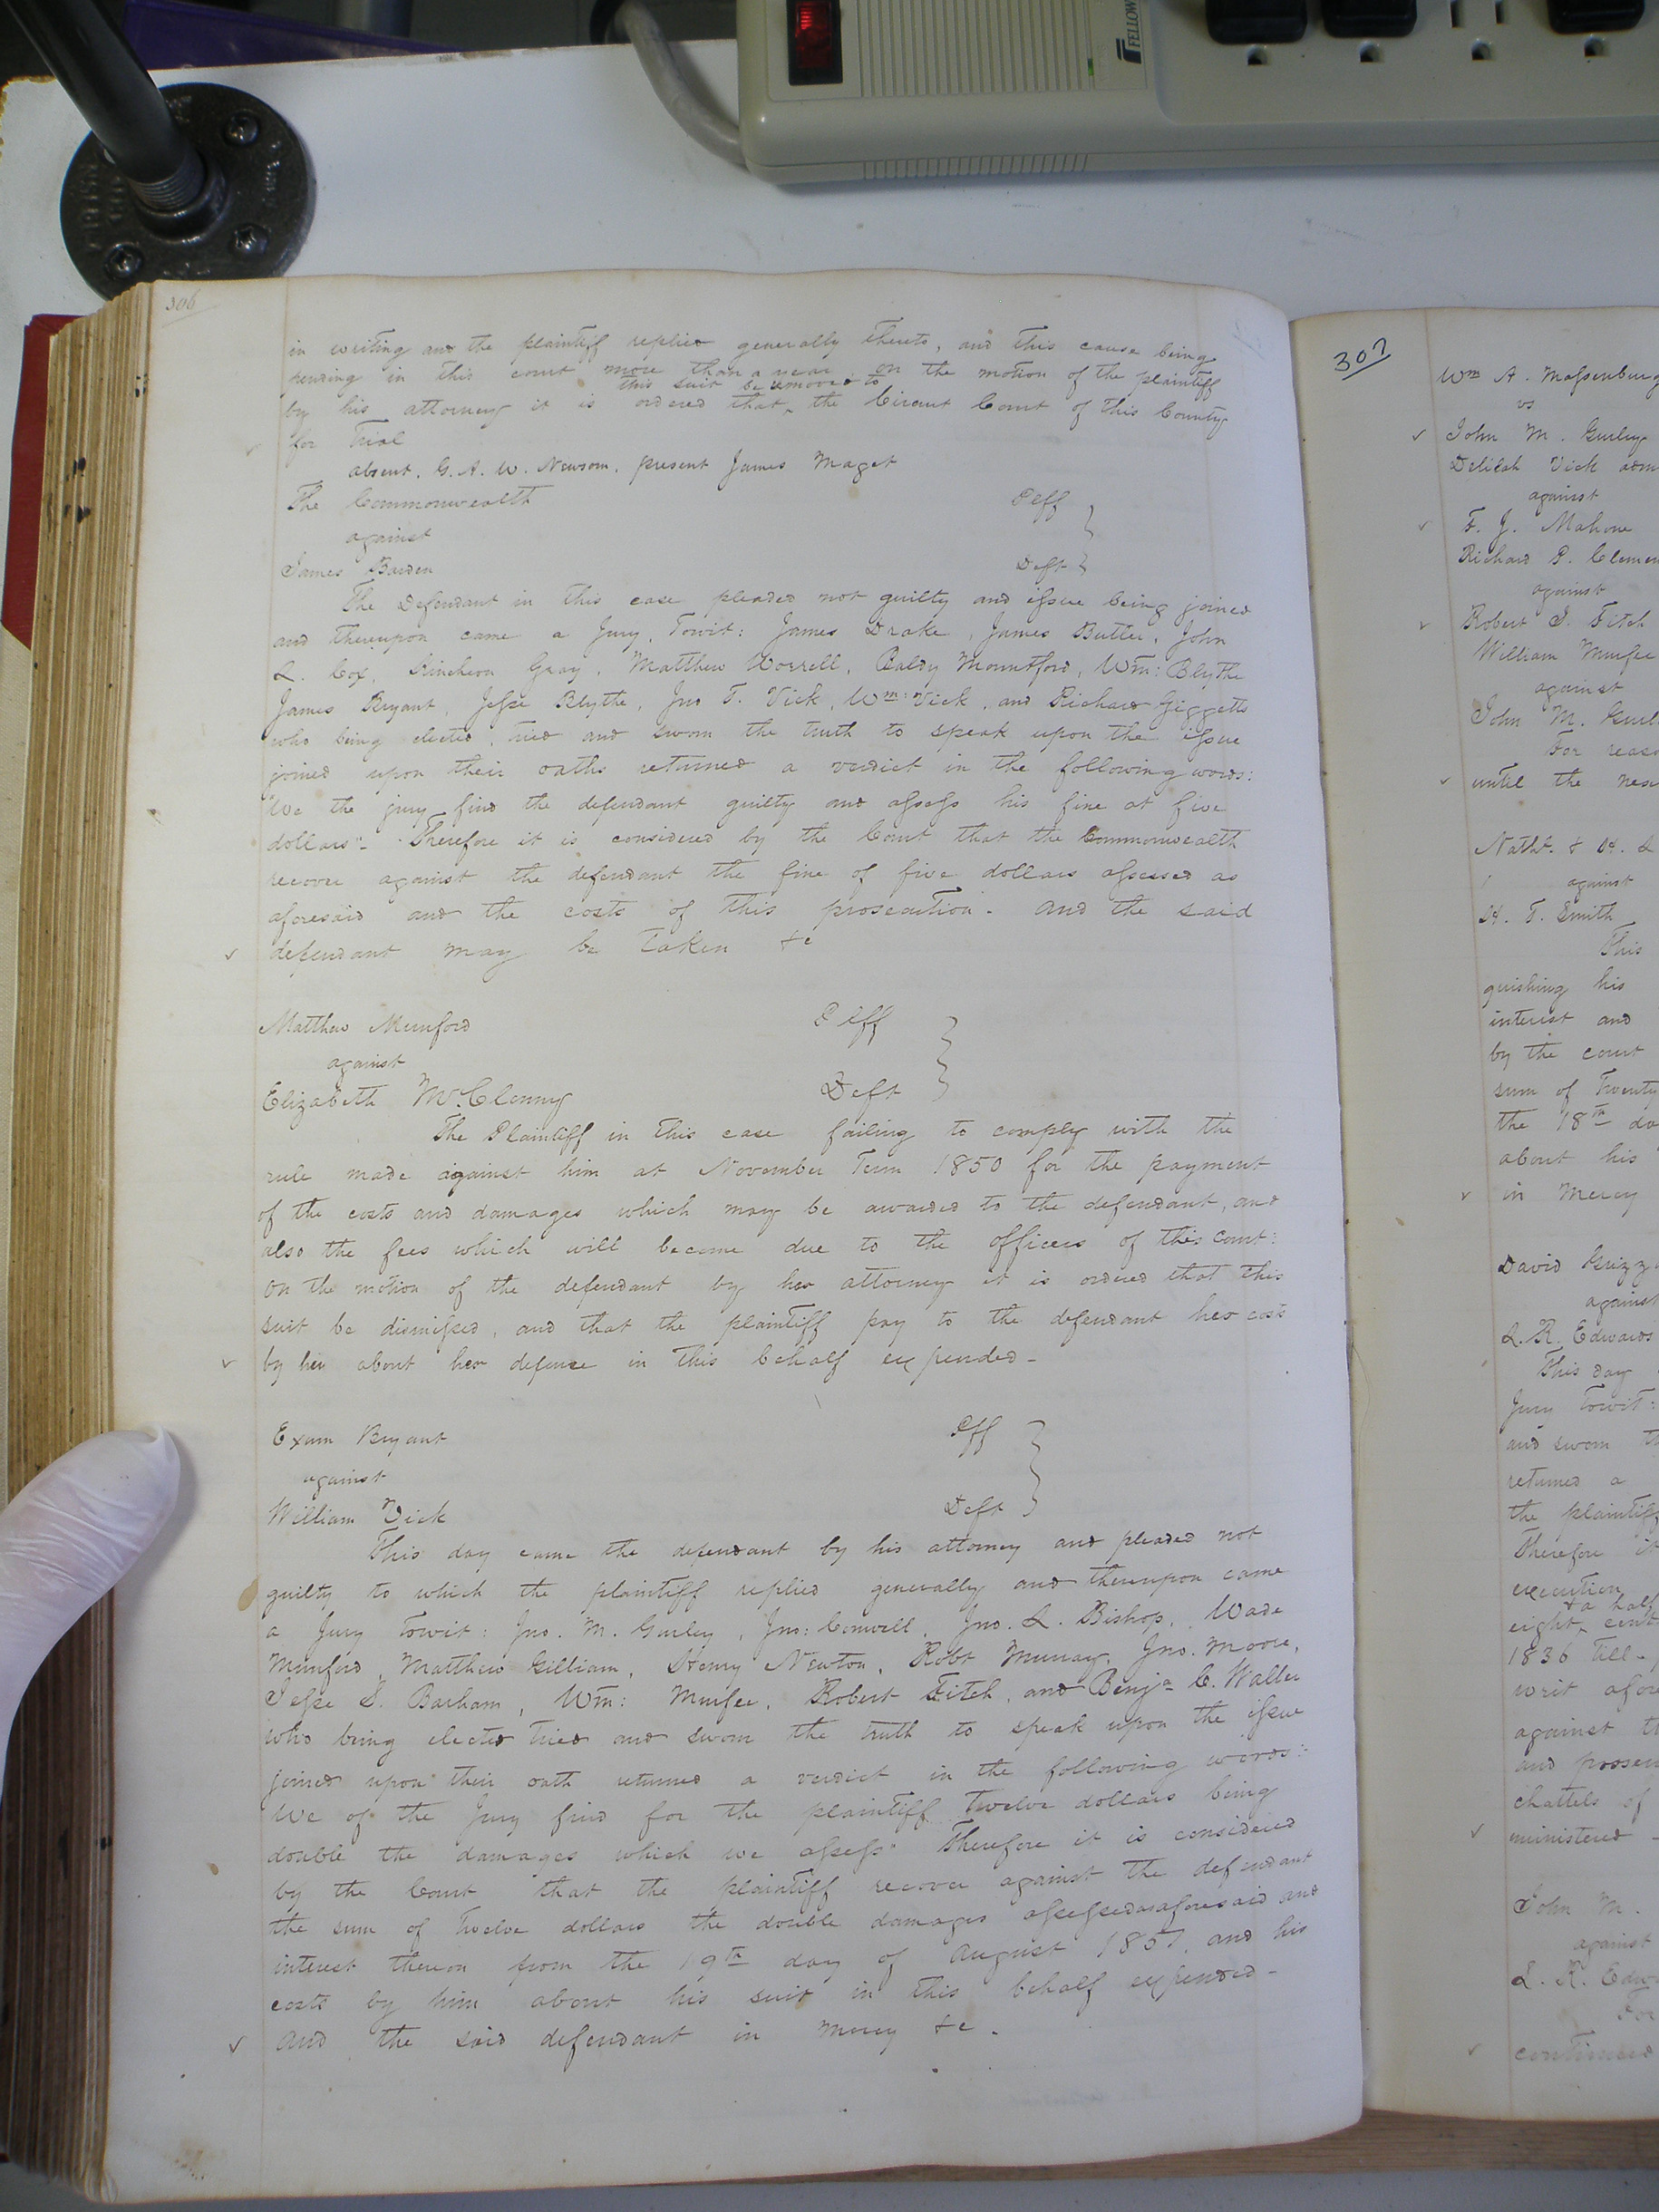 FELLOW
306
in writing and the plaintiff replied generally thereto, and this cause being
pending in this court more than a year on the motion of the plaintiff
this suit be removed to
by his attorney it is ordered that ‸ the Circuit Court of this County
for Trial
absent, G. A. W. Newsom, present James Maget
The Commonwealth Plff
against
James Barden Deft
The Defendant in this case pleaded not guilty and issue being joined
and thereupon came a Jury, Towit: James Drake, James Butler, John
L. Cox, Kinchein Gray, Matthew Worrell, Baldy Mountford, Wm: Blythe
James Bryant, Jesse Blythe, Jno T. Vick, Wm: Vick, and Richard Giggetts
who being elected, tried and sworn the truth to speak upon the issue
joined upon their oaths returned a verdict in the following words:
"We the jury find the defendant guilty and assess his fine at five
dollars"- Therefore it is considered by the Court that the Commonwealth
recover against the defendant the fine of five dollars assessed as
aforesaid and the costs of this prosecution. and the said
defendant may be Taken &c
Matthew Mumford Plff
against
Elizabeth McClenny Deft
The Plaintiff in this case failing to comply with the
rule made against him at November Term 1850 for the payment
of the costs and damages which may be awarded to the defendant, and
also the fees which will become due to the officers of this court:
on the motion of the defendant by her attorney it is ordered that this
suit be dismissed, and that the plaintiff pay to the defendant her costs
by her about her defence in this behalf expended-
Exum Bryant Plff
against
William Vick Deft
This day came the defendant by his attorney and pleaded not
guilty to which the plaintiff replied generally and thereupon came
a Jury Towit: Jno. M. Gurley, Jno: Council, Jno. L. Bishop, Wade
Mumford, Matthew Gilliam, Henry Newton, Robt Murray, Jno. Moore,
Jesse S. Barham, Wm: Murfee, Robert Fitch, and Benja C. Waller
who being elected tried and sworn the truth to speak upon the issue
joined upon their oath returned a verdict in the following words:
We of the Jury find for the plaintiff Twelve dollars being
double the damages which we assess" Therefore it is considered
by the Court that the plaintiff recover against the defendant
the sum of Twelve dollars the double damages assessed as aforesaid and
interest thereon from the 19th day of August 1851, and his
costs by him about his suit in this behalf expended-
and the said defendant in mercy &c.
307
Wm A. Massenburg
vs
John M. Gurley
Delilah Vick adm
against
F. J. Mahone
Richard P. Clemen
against
Robert S. Fitch
William Murfee
against
John M. Gurl
For reas
until the nex
Nathl. & H. L
against
H. T. Smith
This
guishing his
interest and
by the court
sum of Twenty
the 18th da
about his
in Mercy
David Grizz
against
L. R. Edwards
This day
Jury Towit:
and sworn th
returned a
the plaintiff
Therefore it
execution
& a half
eight ‸ cent
1836 till
writ afore
against th
and possess
chattels of
ministered
John M.
against
L. R. Edw
For
continued